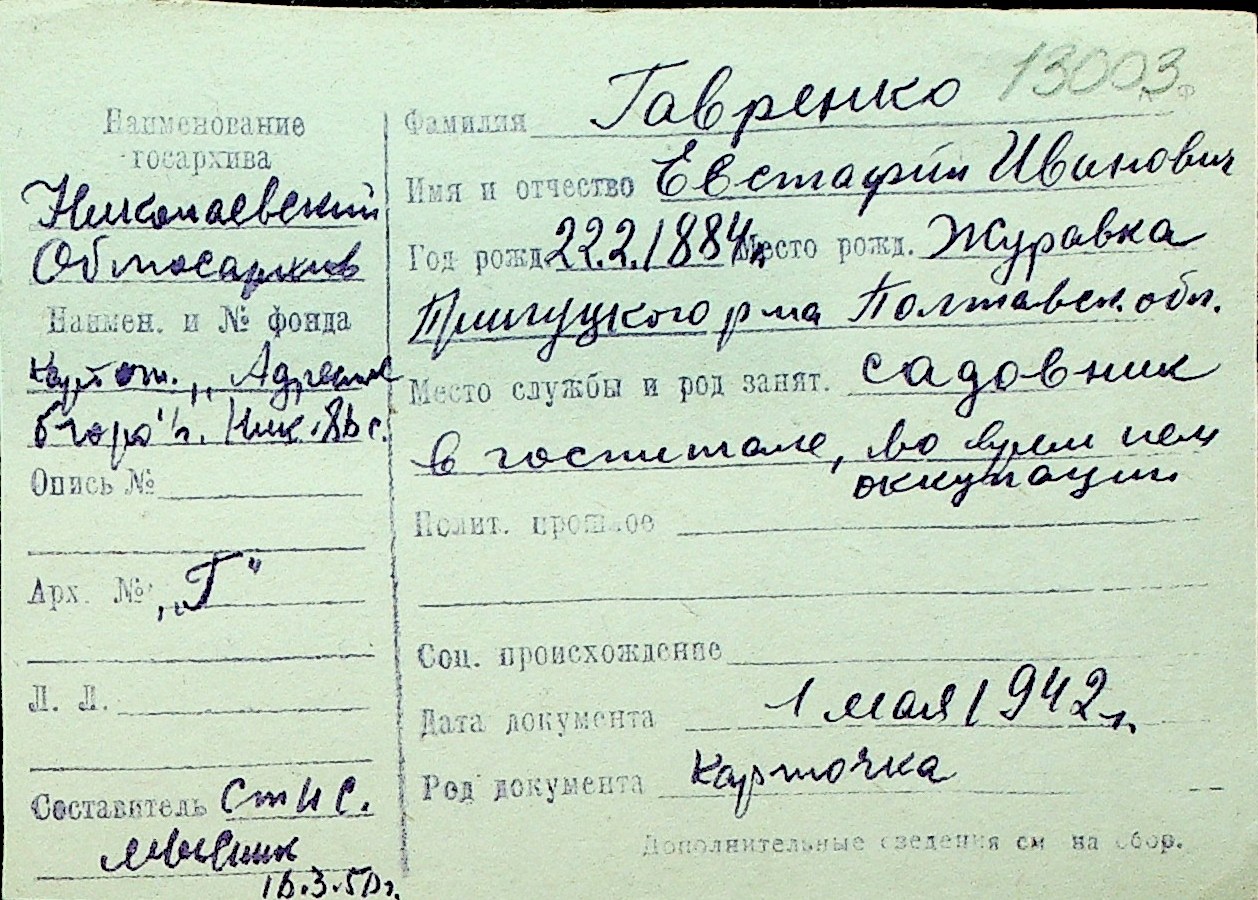 13003
Наименование
госархива
Николаевский
Облгосархив
Наимен. и № фонда
Картот. „Адресное
бюро" г. Ник.
Опись №
Арх. № „Г"
Л. Л.
Составитель Ст Н С.
16.3.50г.
Фамилия Гавренко
Имя и отчество Евстафий Иванович
Год рожд. 22.2.1884г. Место рожд. Журавка
р-на Полтавск. обл.
Место службы и род занят. садовник
в госпитале, во время нем
оккупации
Полит. прошлое
Соц. происхождение
Дата документа 1 мая 1942г.
Род документа карточка
Дополнительные сведения см на обор.